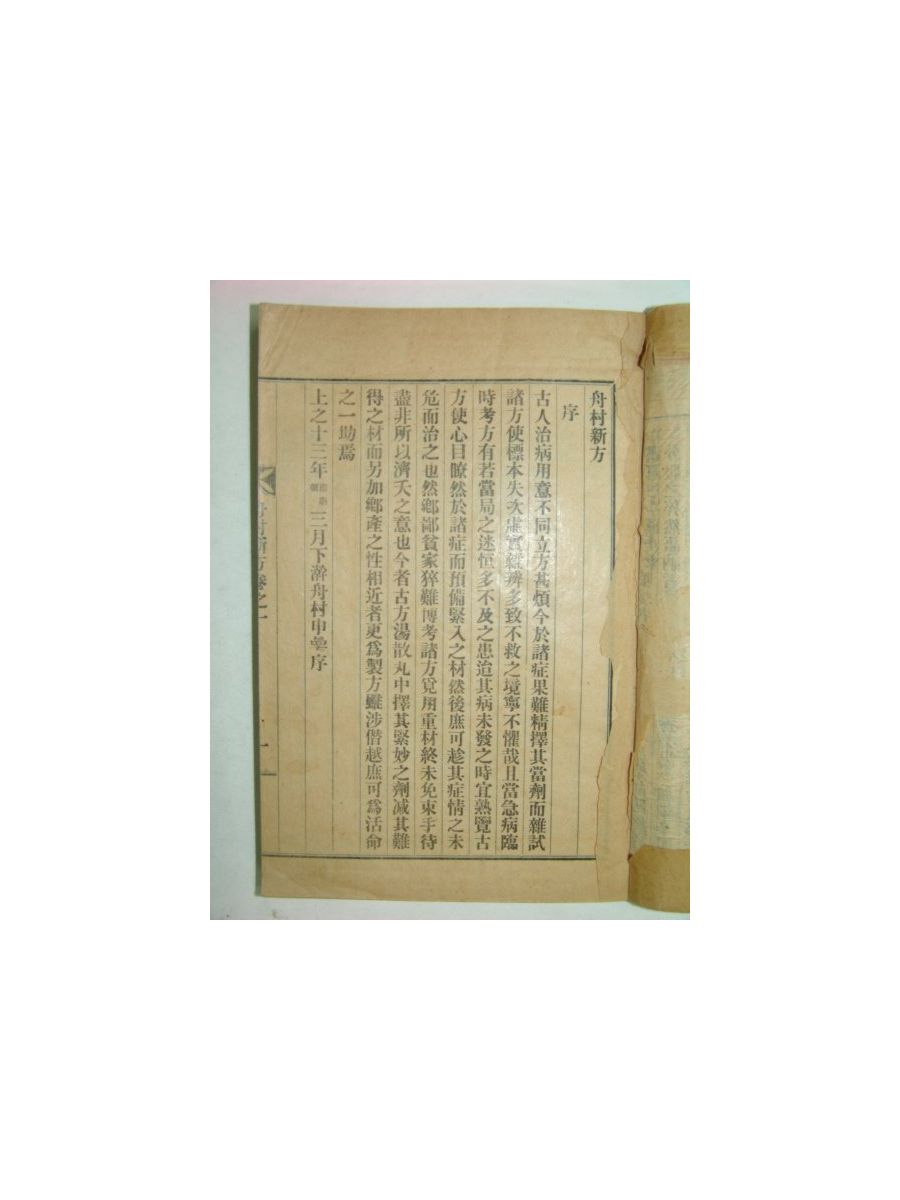 舟村新方
序
古人治病用意不同立方甚煩今於諸症果難精擇其當劑而雜試
諸方使標本失次虛實雜辨多致不救之境寧不懼哉且當急病臨
時考方有若當局之迷恒多不及之患迨其病未發之時宜熟覽古
方使心目瞭然於諸症而預備緊入之材然後庶可趁其症情之未
危而治之也然鄕鄙貧家猝難博考諸方覓用重材終未免束手待
盡非所以濟夭之意也今者古方湯散丸中擇其緊妙之劑减其難
得之材而另加鄕產之性相近者更爲製方雖涉僭越庶可爲活命
之一助焉
上之十三年三月下澣舟村申序
舟村新方卷之一